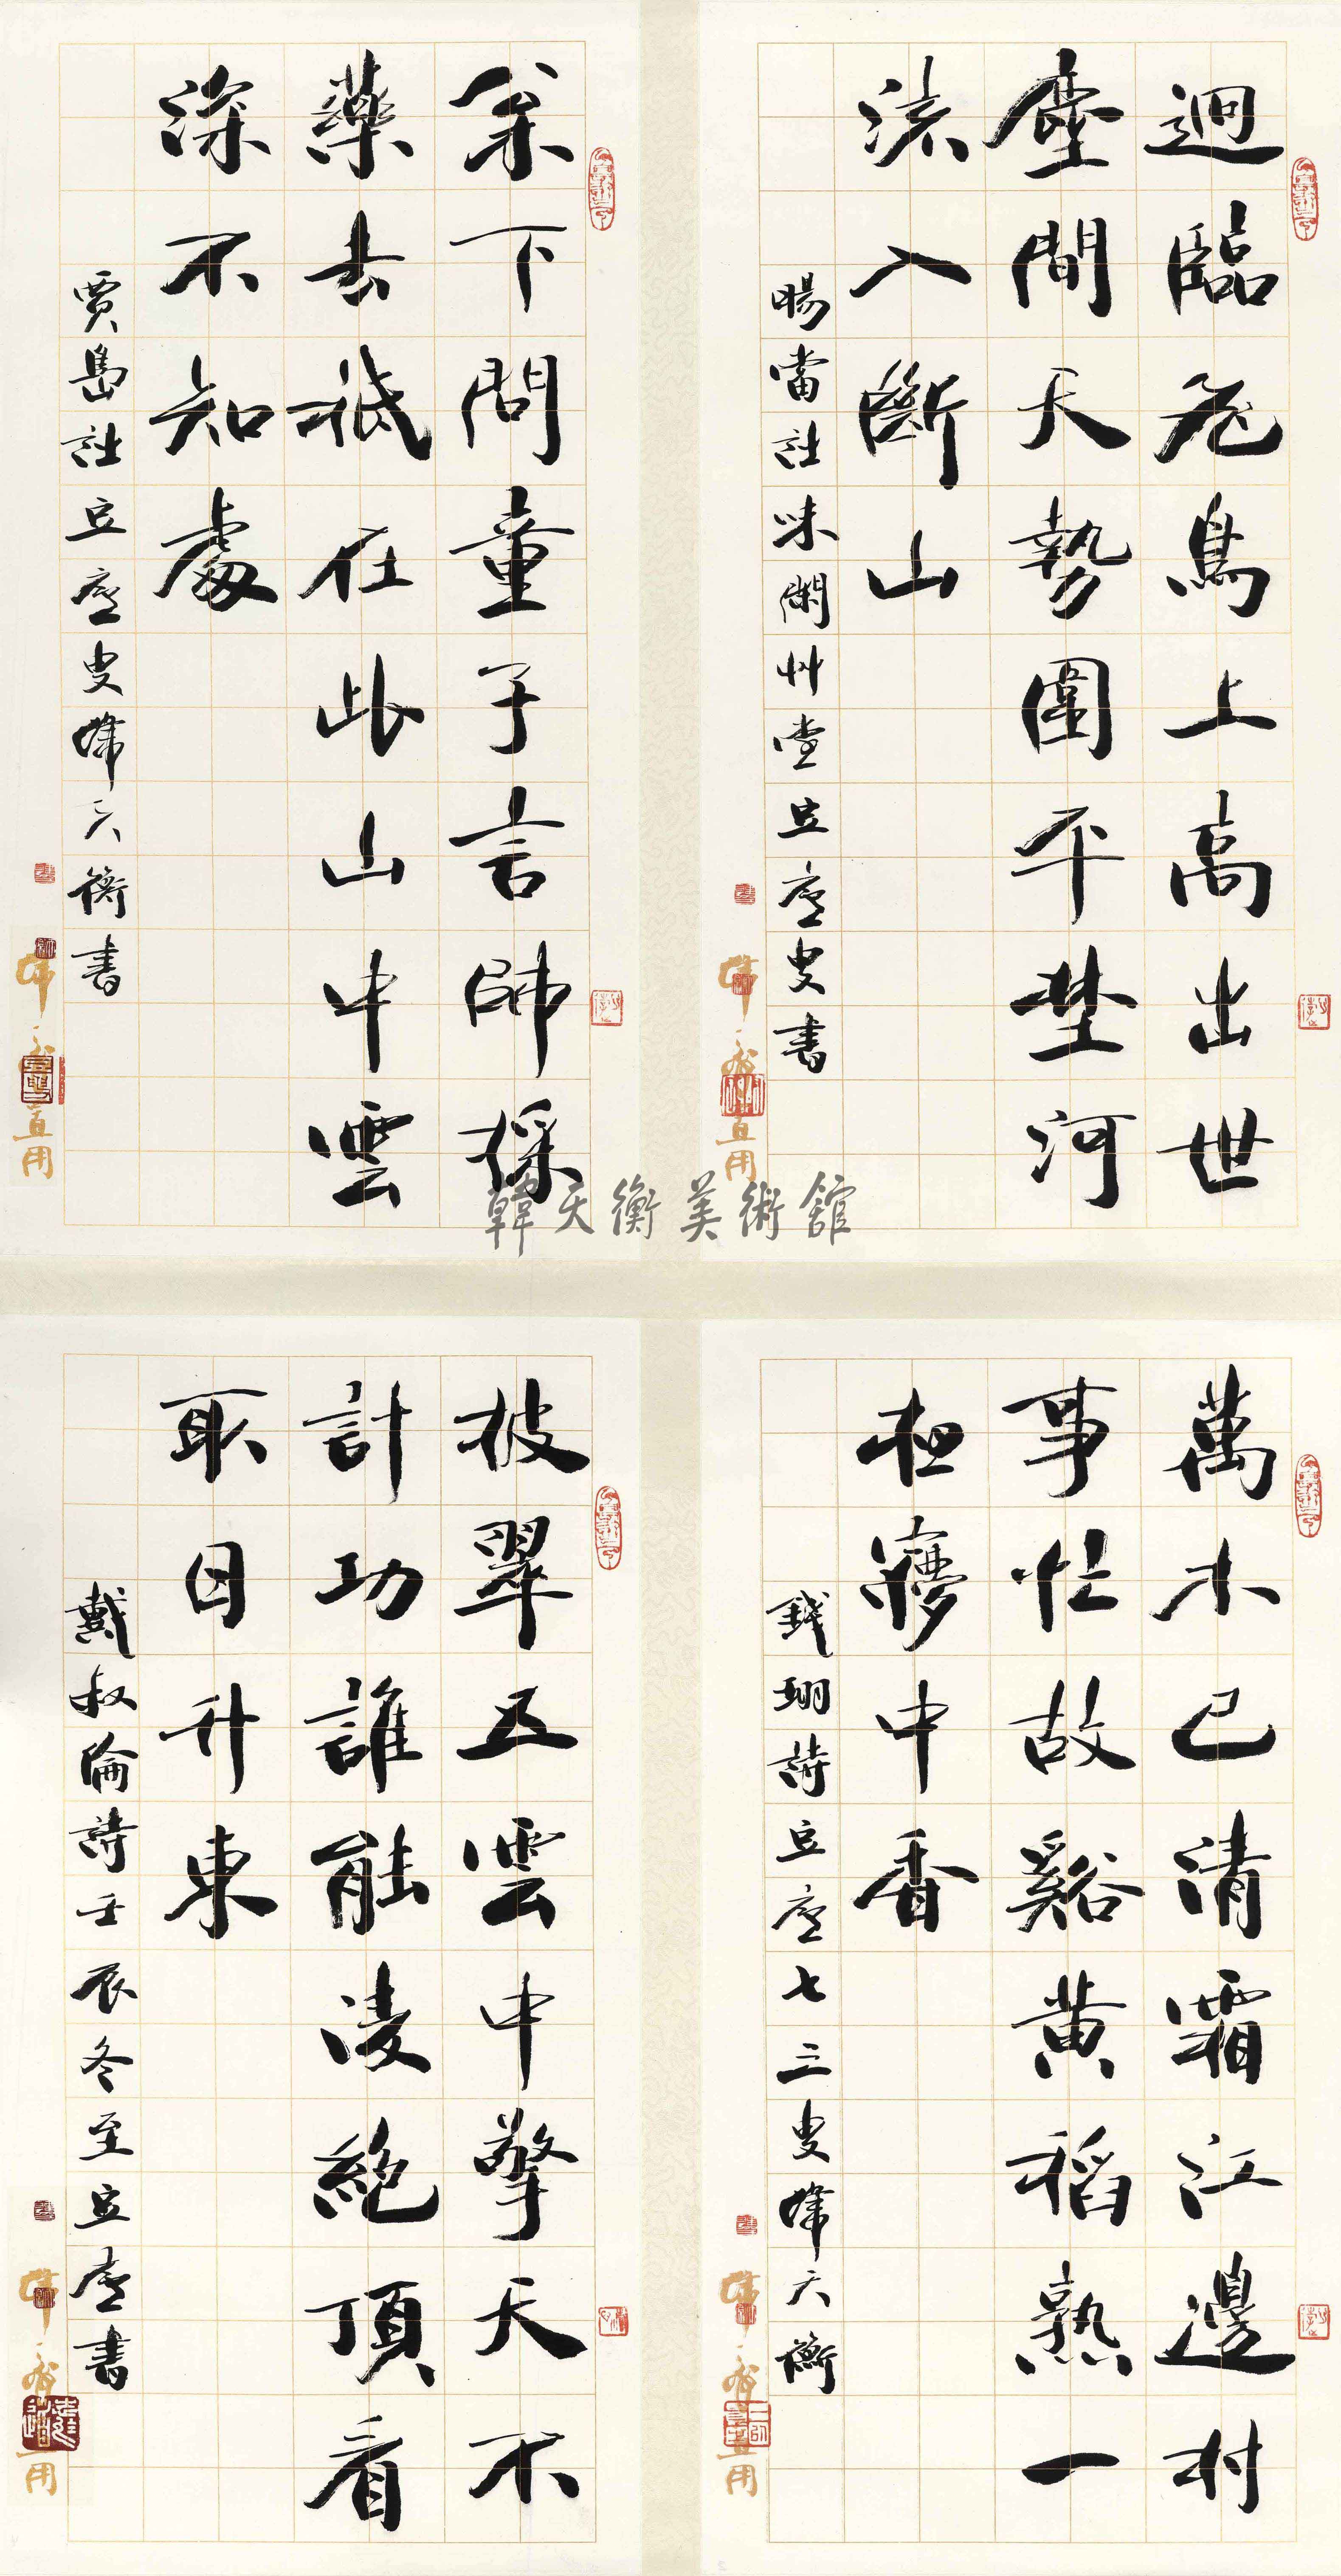 迥臨飛鳥上高出世
塵間天勢圍平埜河
流入斷山
暢當詩味閑艸堂豆廬叟書
枀下問童子言師採
藥去祇在此山中雲
深不知處
賈島詩豆廬叟韓天衡書
韓天衡美術館
萬木已清霜江邊村
事忙故谿黃稻熟一
夜夢中香
錢珝詩豆廬七三叟韓天衡
拔翠五雲中擎天不
計功誰能凌絕頂看
取日升東
戴叔倫詩壬辰冬至豆廬書